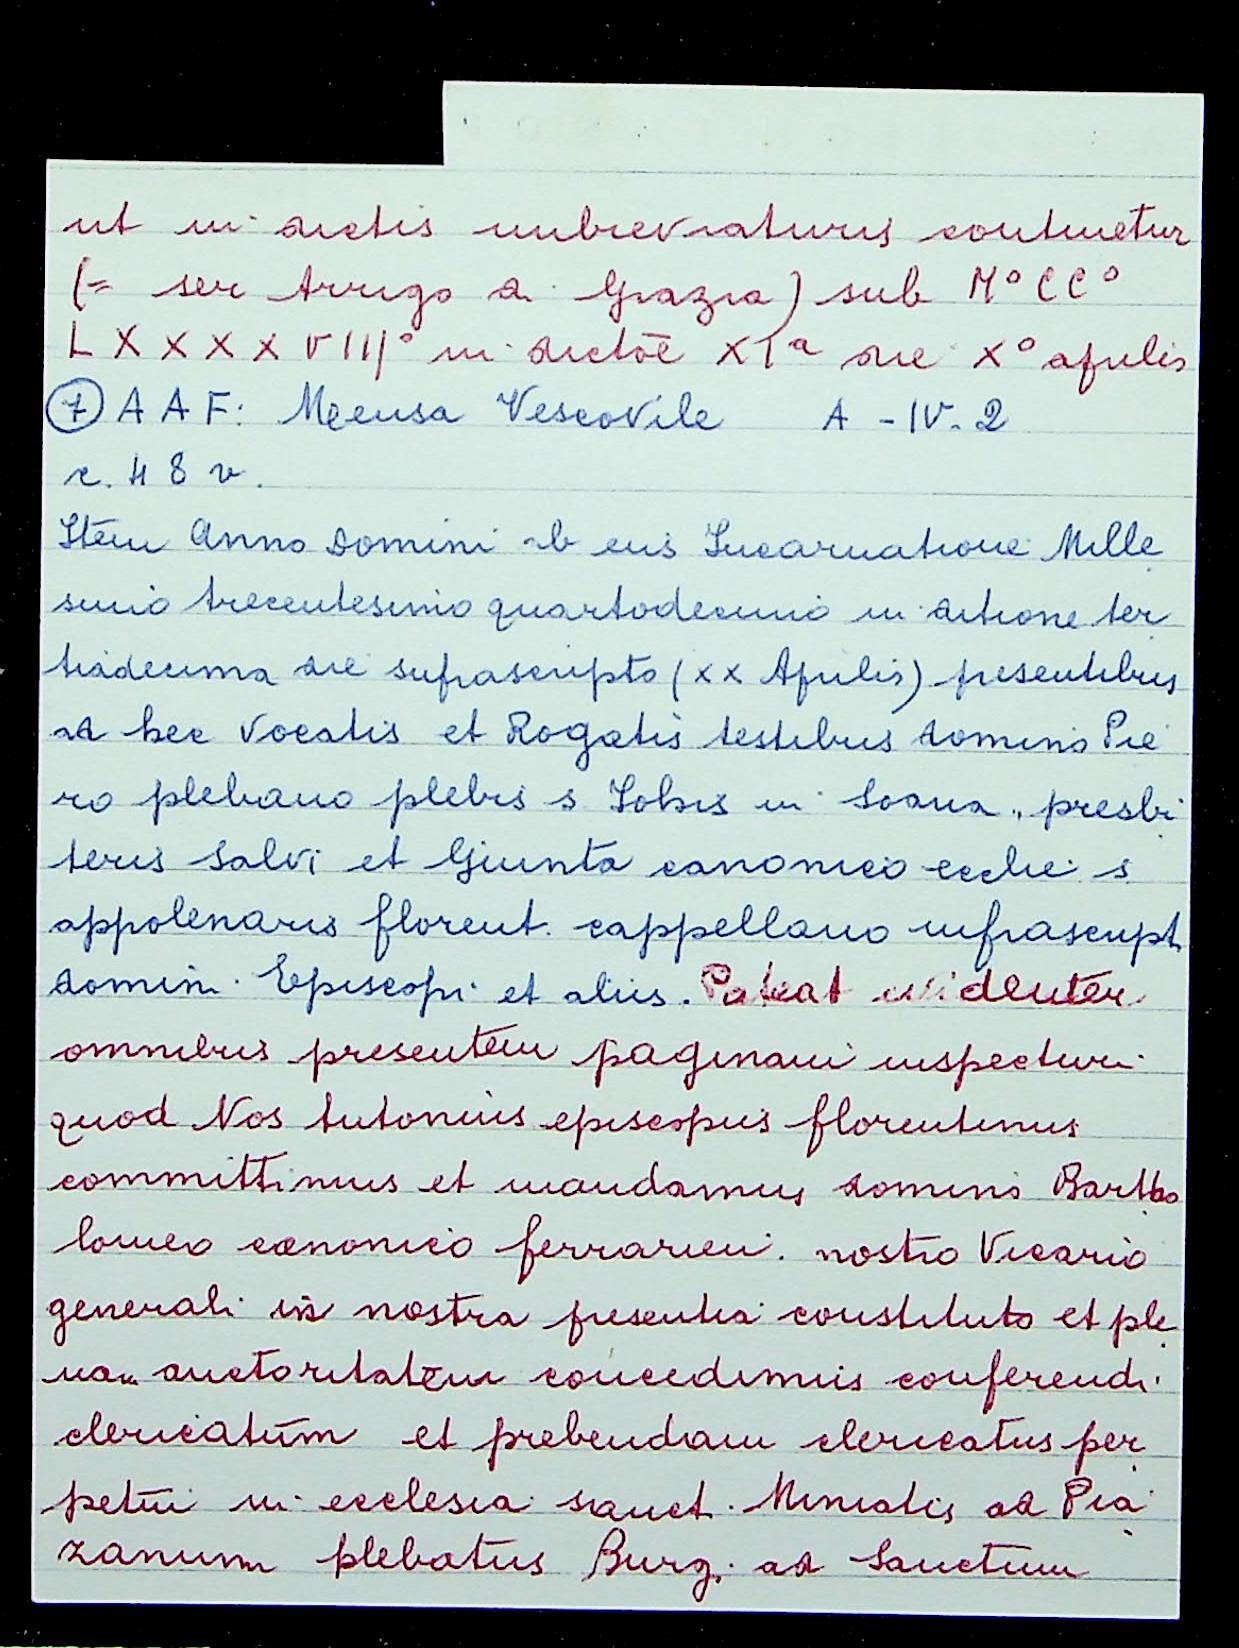 ut in dictis imbreviaturis continetur
(= ser Arrigo di Grazia) sub M° CC°
LXXXXVIII° in dictoē XIᵃ die X° aprilis
⑦ AAF: Mensa Vescovile A - IV. 2
c. 48 v.
Itē̄m Anno Domini ab eius Incarnatione Mille
simo trecentesimo quartodecimo indictione ter
tiadecima die suprascripto (XX Aprilis) presentibus
ad hec vocatis et Rogatis testibus domino Pie
ro plebano plebis s Iohis in Soana, presbi
teris Salvi et Giunta canonico ecclie s
appolenaris florent. cappellano infrascript
domini Episcopi et aliis. Pateat evidenter
omnibus presentem paginam inspecturi
quod Nos Antonius episcopus florentinus
committimus et mandamus domino Bartho
lomeo canonico ferrarien. nostro Vicario
generali in nostra presentia constituto et ple
nam auctoritatem concedimus conferendi
clericatūm et prebendam clericatus per
petūi in ecclesia sanct. Miniatis ad Pia
zanum plebatus Burg. ad Sanctum